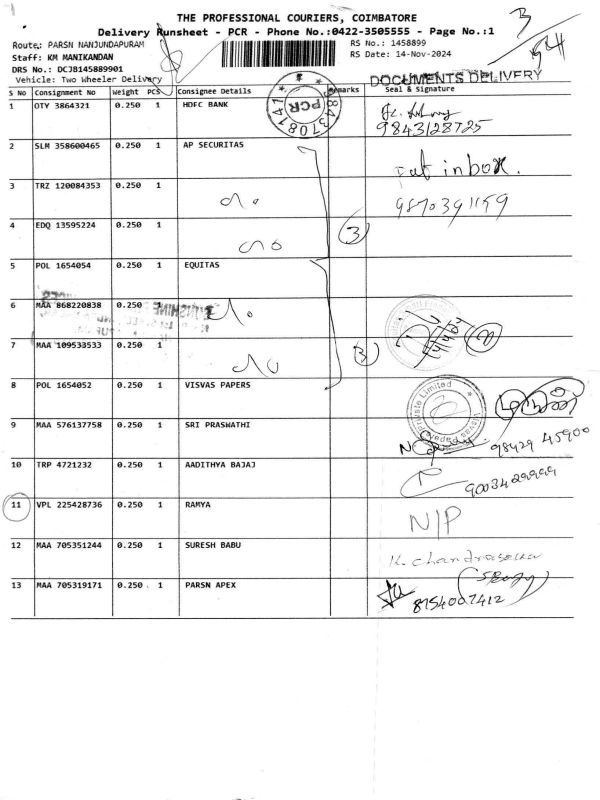 THE PROFESSIONAL COURIERS, COIMBATORE
Delivery Runsheet - PCR - Phone No.:0422-3505555 - Page No.:1
Route: PARSN NANJUNDAPURAM
RS No.: 1458899
Staff: KM MANIKANDAN
RS Date: 14-Nov-2024
DRS No.: DCJB145889901
Vehicle: Two Wheeler Delivery
DOCUMENTS DELIVERY
S No Consignment No Weight PCS Consignee Details Remarks Seal & Signature
1 OTY 3864321 0.250 1 HDFC BANK
PCR
9843128725
2 SLM 358600465 0.250 1 AP SECURITAS
Put in box.
3 TRZ 120084353 0.250 1
9870391159
4 EDQ 13595224 0.250 1
3
5 POL 1654054 0.250 1 EQUITAS
6 MAA 868220838 0.250 1
7 MAA 109533533 0.250 1
3
8 POL 1654052 0.250 1 VISVAS PAPERS
Private Limited
9 MAA 576137758 0.250 1 SRI PRASWATHI
98429 45900
10 TRP 4721232 0.250 1 AADITHYA BAJAJ
9003429999
11 VPL 225428736 0.250 1 RAMYA
N/P
12 MAA 705351244 0.250 1 SURESH BABU
13 MAA 705319171 0.250 1 PARSN APEX
8754007412